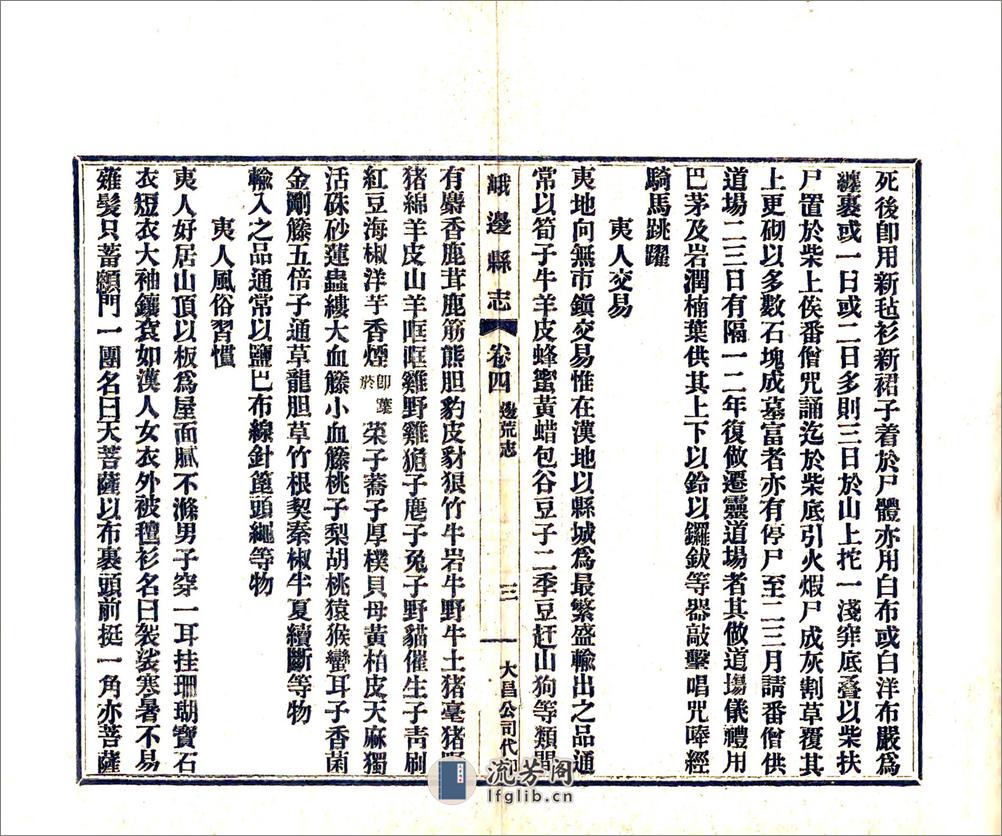 死後卽用新毡衫新裙子着於尸體亦用白布或白洋布嚴爲
纏裹或一日或二日多則三日於山上挖一淺穽底叠以柴扶
尸置於柴上俟番僧咒誦迄於柴底引火煆尸成灰割草覆其
上更砌以多數石塊成墓富者亦有停尸至二三月請番僧供
道場二三日有隔一二年復做遷靈道場者其做道場儀禮用
巴茅及岩澗楠葉供其上下以鈴以鑼鈸等器敲擊唱咒唪經
騎馬跳躍
夷人交易
夷地向無市鎭交易惟在漢地以縣城爲最繁盛輸出之品通
常以筍子牛羊皮蜂蜜黃蜡包谷豆子二季豆赶山狗等類間
峨邊縣志 卷四 邊荒志 三 大昌公司代印
有麝香鹿茸鹿筋熊胆豹皮豺狼竹牛岩牛野牛土猪毫猪
猪綿羊皮山羊㕵㕵雞野雞獐子麂子兔子野貓催生子靑刷
紅豆海椒洋芋香煙卽葉菸菜子蕎子厚樸貝母黃柏皮天麻獨
活硃砂蓮蟲縷大血籐小血籐桃子梨胡桃猿猴蠻耳子香菌
金剛籐五倍子通草龍胆草竹根契秦椒半夏續斷等物
輸入之品通常以鹽巴布線針篦頭繩等物
夷人風俗習慣
夷人好居山頂以板爲屋面膩不滌男子穿一耳挂珊瑚寶石
衣短衣大袖鑲衮如漢人女衣外被氊衫名曰袈裟寒暑不易
薙髮只蓄顖門一團名曰天菩薩以布裹頭前挺一角亦菩薩
流芳阁
lfglib.cn